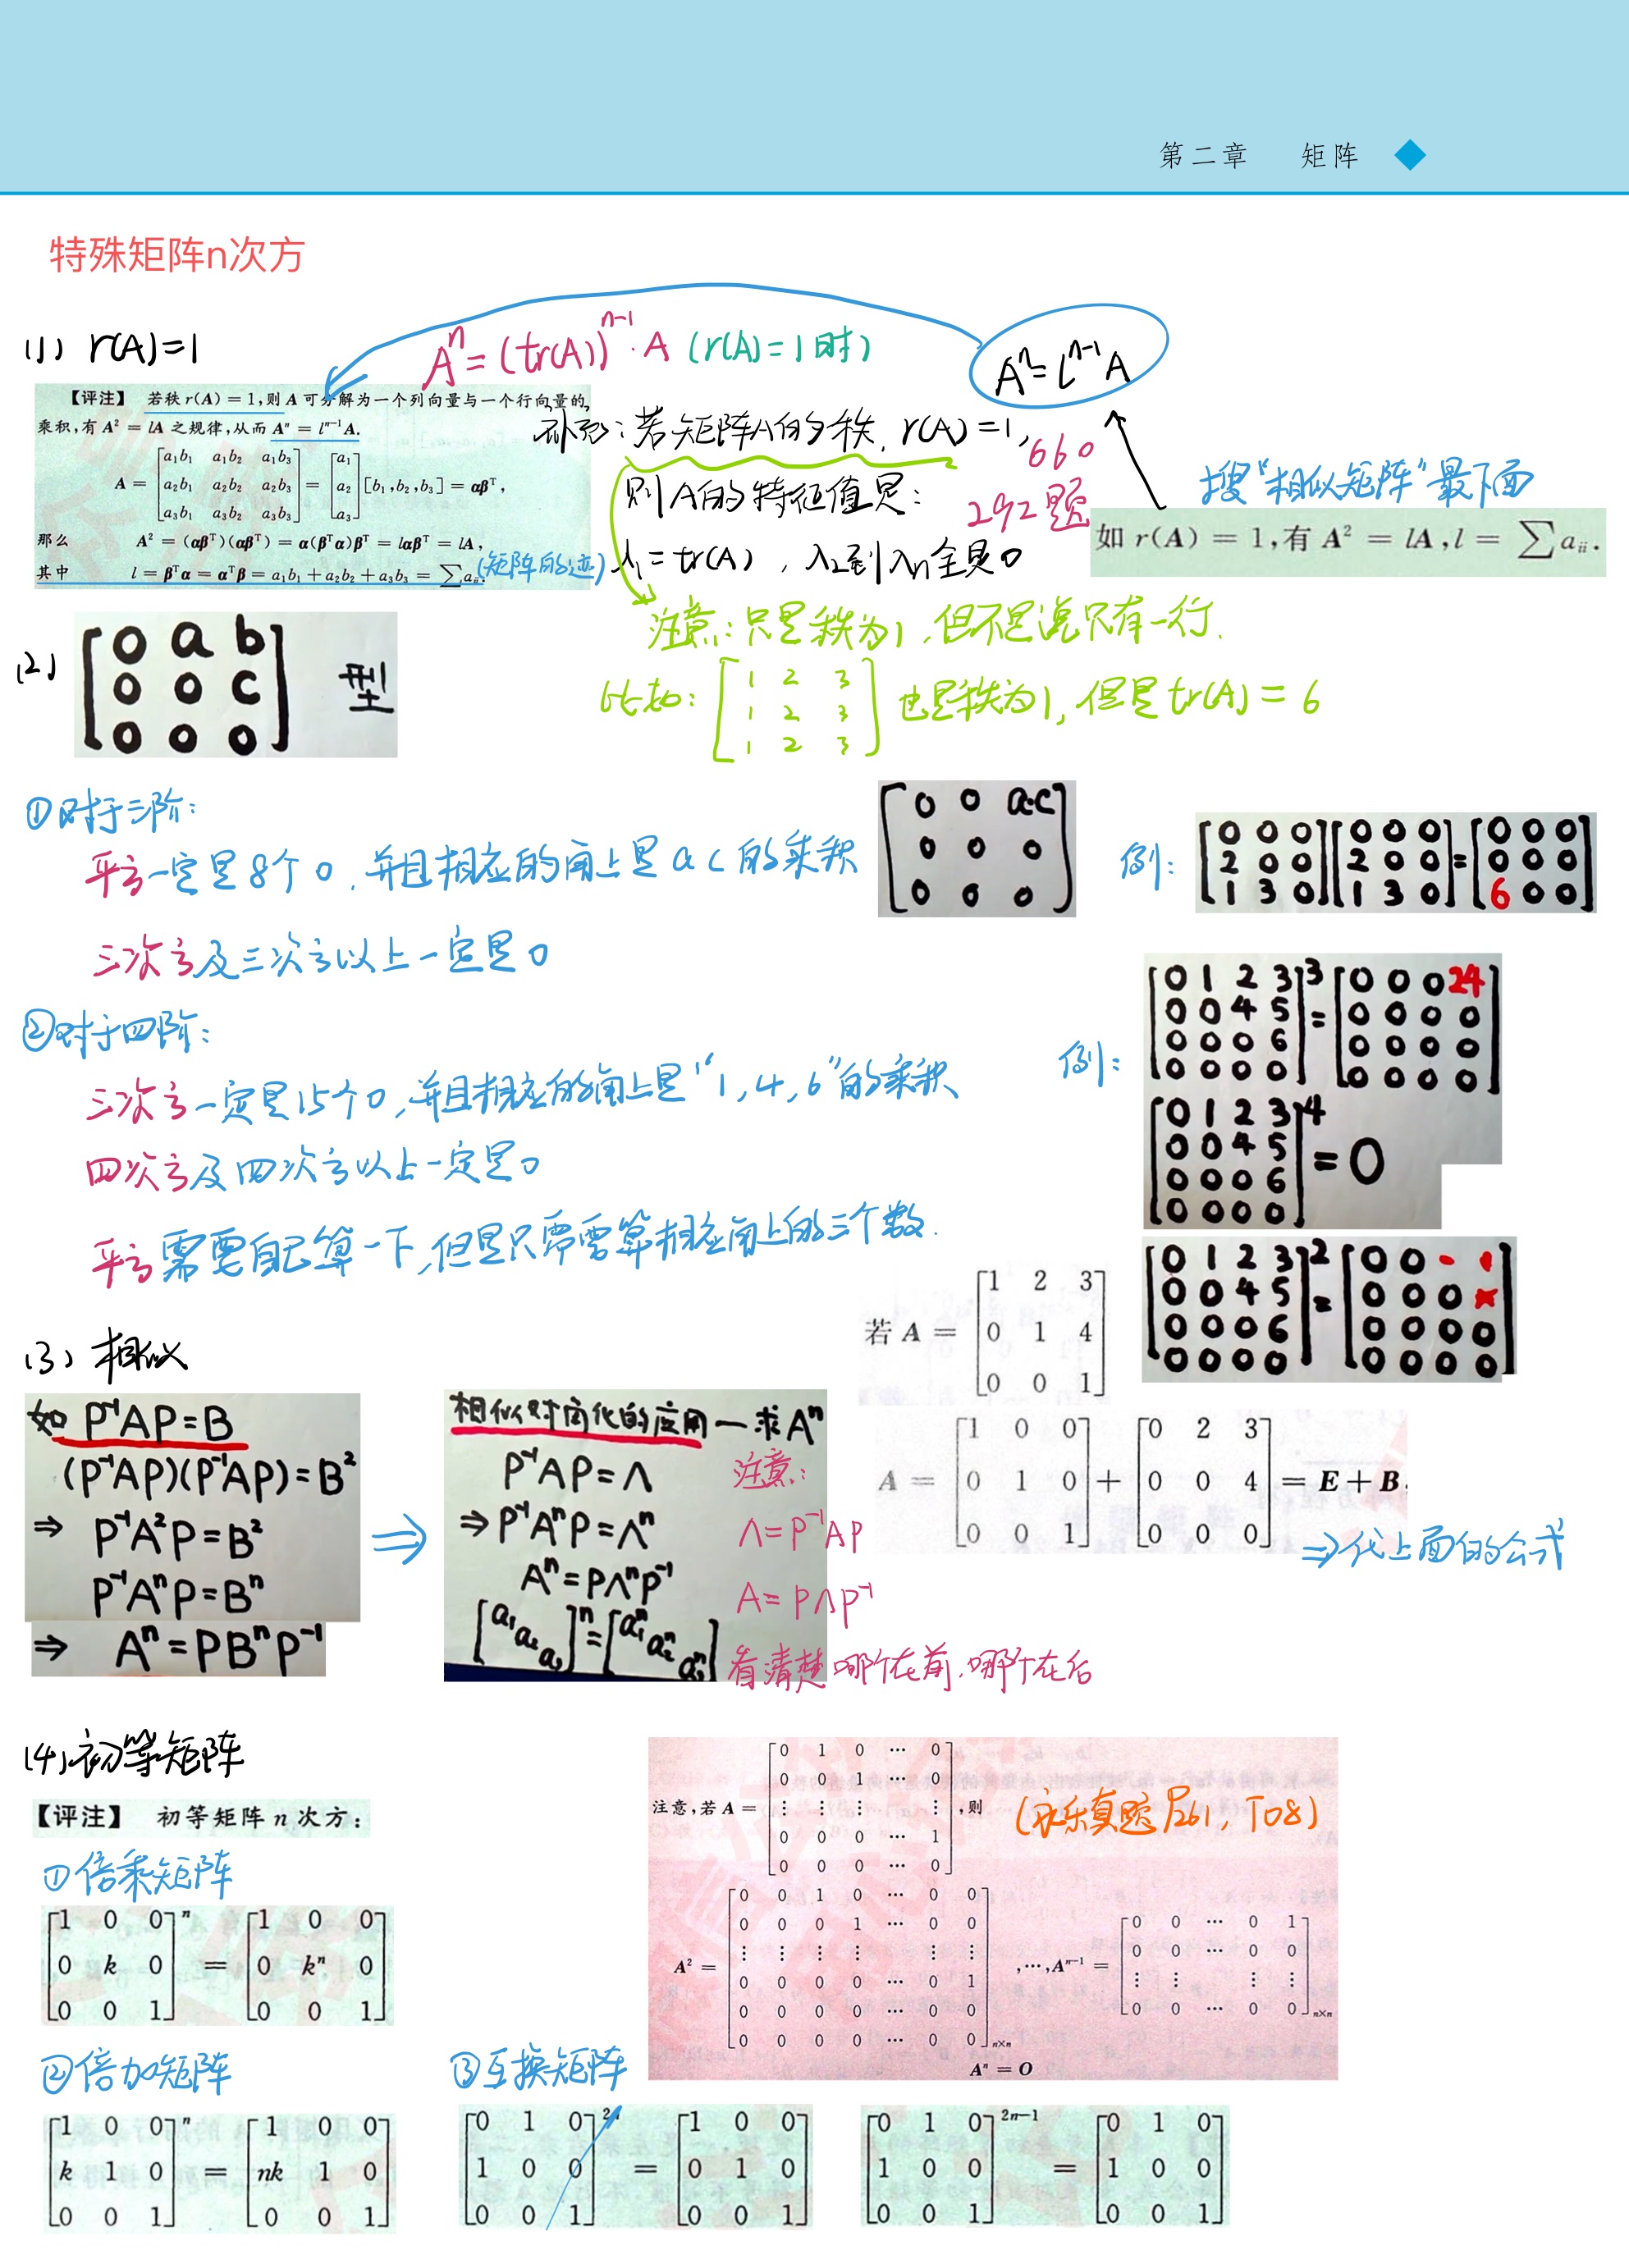 第二章 矩阵
特殊矩阵n次方
(1) r(A)=1
Aⁿ=(tr(A))ⁿ⁻¹·A (r(A)=1时)
Aⁿ=lⁿ⁻¹A
【评注】 若秩 r(A)=1,则 A 可分解为一个列向量与一个行向量的
乘积,有 A²=lA 之规律,从而 Aⁿ=lⁿ⁻¹A.
A = [a₁b₁ a₁b₂ a₁b₃; a₂b₁ a₂b₂ a₂b₃; a₃b₁ a₃b₂ a₃b₃] = [a₁; a₂; a₃][b₁,b₂,b₃] = αβᵀ,
那么 A²=(αβᵀ)(αβᵀ)=α(βᵀα)βᵀ=lαβᵀ=lA,
其中 l=βᵀα=αᵀβ=a₁b₁+a₂b₂+a₃b₃=∑aᵢᵢ.
(矩阵的迹)
补充:若矩阵A的秩, r(A)=1,
则A的特征值是:
λ₁=tr(A), λ₂到λₙ全是0
660
292题
搜"相似矩阵"最下面
如 r(A)=1,有 A²=lA,l=∑aᵢᵢ.
注意:只是秩为1,但不是说只有一行.
比如:[1 2 3; 1 2 3; 1 2 3] 也是秩为1,但是tr(A)=6
(2) [0 a b; 0 0 c; 0 0 0] 型
①对于三阶:
平方一定是8个0,并且相应的角上是ac的乘积
[0 0 a·c; 0 0 0; 0 0 0]
例: [0 0 0; 2 0 0; 1 3 0][0 0 0; 2 0 0; 1 3 0]=[0 0 0; 0 0 0; 6 0 0]
三次方及三次方以上一定是0
②对于四阶:
三次方一定是15个0,并且相应的角上是"1,4,6"的乘积
四次方及四次方以上一定是0
平方需要自己算一下,但是只需要算相应角上的三个数.
例: [0 1 2 3; 0 0 4 5; 0 0 0 6; 0 0 0 0]³=[0 0 0 24; 0 0 0 0; 0 0 0 0; 0 0 0 0]
[0 1 2 3; 0 0 4 5; 0 0 0 6; 0 0 0 0]⁴=0
[0 1 2 3; 0 0 4 5; 0 0 0 6; 0 0 0 0]²=[0 0 · ·; 0 0 0 ×; 0 0 0 0; 0 0 0 0]
若 A = [1 2 3; 0 1 4; 0 0 1]
A = [1 0 0; 0 1 0; 0 0 1] + [0 2 3; 0 0 4; 0 0 0] = E+B.
⇒代上面的公式
(3) 相似
如 P⁻¹AP=B
(P⁻¹AP)(P⁻¹AP)=B²
⇒ P⁻¹A²P=B²
P⁻¹AⁿP=Bⁿ
⇒ Aⁿ=PBⁿP⁻¹
⇒
相似对角化的应用—求Aⁿ
P⁻¹AP=Λ
⇒P⁻¹AⁿP=Λⁿ
Aⁿ=PΛⁿP⁻¹
[a₁ a₂ a₃]ⁿ=[a₁ⁿ a₂ⁿ a₃ⁿ]
注意:
Λ=P⁻¹AP
A=PΛP⁻¹
看清楚哪个在前,哪个在后
(4)初等矩阵
【评注】 初等矩阵 n 次方:
①倍乘矩阵
[1 0 0; 0 k 0; 0 0 1]ⁿ = [1 0 0; 0 kⁿ 0; 0 0 1]
②倍加矩阵
[1 0 0; k 1 0; 0 0 1]ⁿ = [1 0 0; nk 1 0; 0 0 1]
③互换矩阵
[0 1 0; 1 0 0; 0 0 1]²ⁿ = [1 0 0; 0 1 0; 0 0 1]
[0 1 0; 1 0 0; 0 0 1]²ⁿ⁻¹ = [0 1 0; 1 0 0; 0 0 1]
注意,若 A = [0 1 0 ⋯ 0; 0 0 1 ⋯ 0; ⋮ ⋮ ⋮ ⋮; 0 0 0 ⋯ 1; 0 0 0 ⋯ 0],则
(永乐真题P261, T08)
A² = [0 0 1 0 ⋯ 0 0; 0 0 0 1 ⋯ 0 0; ⋮ ⋮ ⋮ ⋮ ⋮ ⋮; 0 0 0 0 ⋯ 0 1; 0 0 0 0 ⋯ 0 0; 0 0 0 0 ⋯ 0 0]ₙ×ₙ ,⋯,Aⁿ⁻¹ = [0 0 ⋯ 0 1; 0 0 ⋯ 0 0; ⋮ ⋮ ⋮ ⋮; 0 0 ⋯ 0 0]ₙ×ₙ
Aⁿ = O